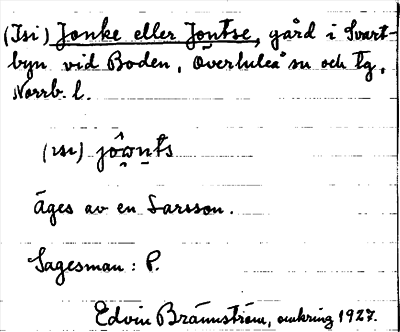 (Isi) Jonke eller Jontse, gård i Svart-
byn vid Boden, Överluleå sn och tg,
Norrb. l.
(ısı) jôwnts
Äges av en Larsson.
Sagesman: P.
Edvin Brännström, omkring 1927.